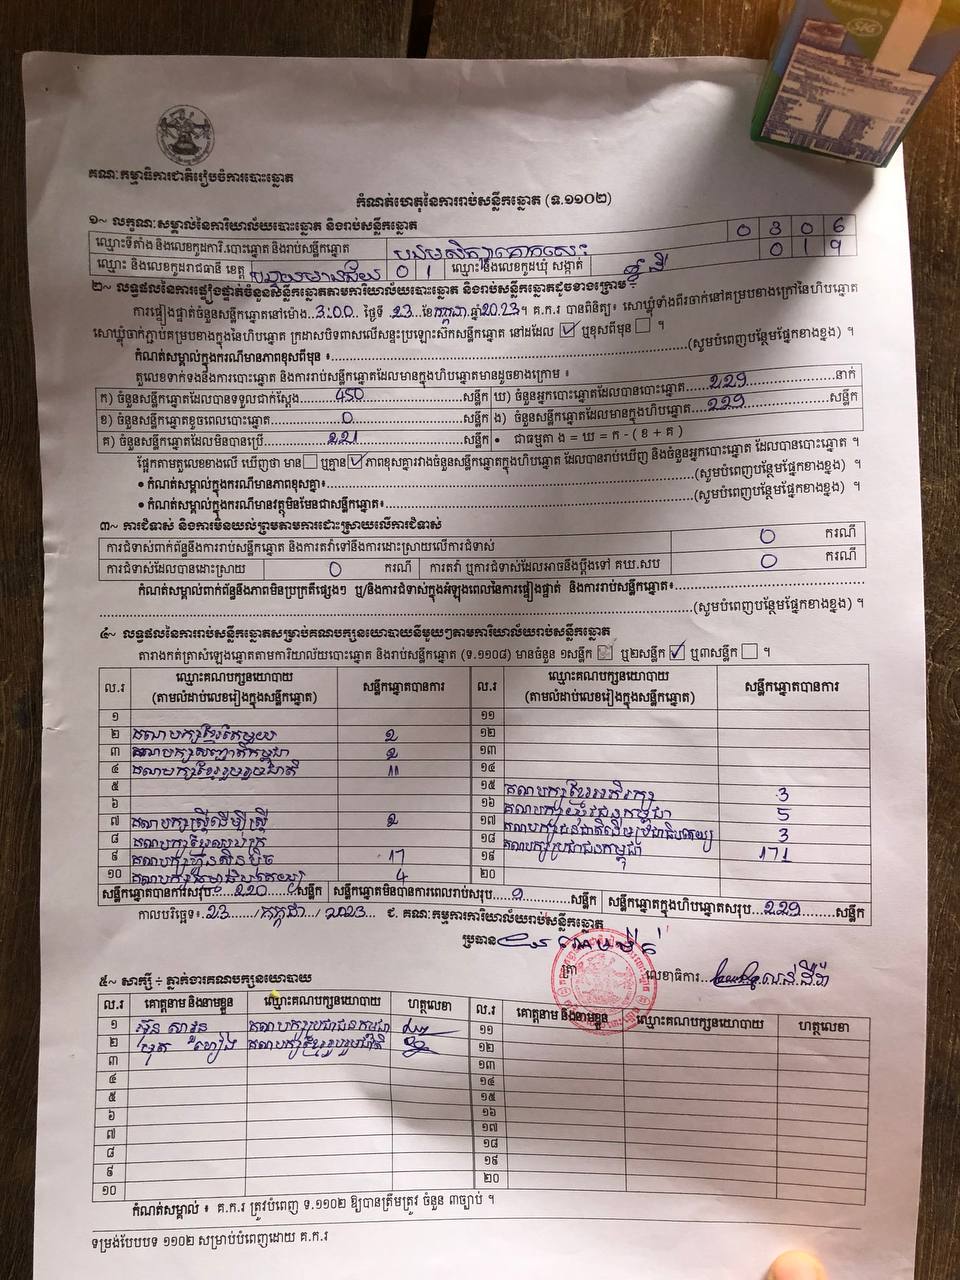 គណៈកម្មាធិការជាតិរៀបចំការបោះឆ្នោត
កំណត់ហេតុនៃការរាប់សន្លឹកឆ្នោត (ទ.១១០២)
១~ លក្ខណៈសម្គាល់នៃការិយាល័យបោះឆ្នោត និងរាប់សន្លឹកឆ្នោត
ឈ្មោះទីតាំង និងលេខកូដការិ.បោះឆ្នោត និងរាប់សន្លឹកឆ្នោត 0 3 0 6
ឈ្មោះ និងលេខកូដរាជធានី ខេត្ត បន្ទាយមានជ័យ 0 1 ឈ្មោះ និងលេខកូដឃុំ សង្កាត់ 0 1 9
២~ លទ្ធផលនៃការផ្ទៀងផ្ទាត់ចំនួនសន្លឹកឆ្នោតតាមការិយាល័យបោះឆ្នោត និងរាប់សន្លឹកឆ្នោតដូចខាងក្រោម ៖
ការផ្ទៀងផ្ទាត់ចំនួនសន្លឹកឆ្នោតនៅម៉ោង..3:00.. ថ្ងៃទី ..23.. ខែ កក្កដា ឆ្នាំ 2023. គ.ក.រ បានពិនិត្យ៖ សោឃ្លុំទាំងពីរចាក់នៅគម្របខាងក្រៅនៃហិបឆ្នោត
សោឃ្លុំចាក់ភ្ជាប់គម្របខាងក្នុងនៃហិបឆ្នោត ក្រដាសបិទពាសលើសន្ទះប្រឡោះស៊កសន្លឹកឆ្នោត នៅដដែល ☑ ឬខុសពីមុន ☐ ។
កំណត់សម្គាល់ក្នុងករណីមានភាពខុសពីមុន ៖..........(សូមបំពេញបន្ថែមផ្នែកខាងខ្នង) ។
តួលេខទាក់ទងនឹងការបោះឆ្នោត និងការរាប់សន្លឹកឆ្នោតដែលមានក្នុងហិបឆ្នោតមានដូចខាងក្រោម ៖
ក) ចំនួនសន្លឹកឆ្នោតដែលបានទទួលជាក់ស្តែង.....450.....សន្លឹក ឃ) ចំនួនអ្នកបោះឆ្នោតដែលបានបោះឆ្នោត.....229.....នាក់
ខ) ចំនួនសន្លឹកឆ្នោតខូចពេលបោះឆ្នោត.....0.....សន្លឹក ង) ចំនួនសន្លឹកឆ្នោតដែលមានក្នុងហិបឆ្នោត.....229.....សន្លឹក
គ) ចំនួនសន្លឹកឆ្នោតដែលមិនបានប្រើ.....221.....សន្លឹក • ជាធម្មតា ង = ឃ = ក - ( ខ + គ )
ផ្អែកតាមតួលេខខាងលើ ឃើញថា មាន ☐ ឬគ្មាន ☑ ភាពខុសគ្នារវាងចំនួនសន្លឹកឆ្នោតក្នុងហិបឆ្នោត ដែលបានរាប់ឃើញ និងចំនួនអ្នកបោះឆ្នោត ដែលបានបោះឆ្នោត ។
• កំណត់សម្គាល់ក្នុងករណីមានភាពខុសគ្នា៖..........(សូមបំពេញបន្ថែមផ្នែកខាងខ្នង) ។
• កំណត់សម្គាល់ក្នុងករណីមានវត្ថុមិនមែនជាសន្លឹកឆ្នោត៖..........(សូមបំពេញបន្ថែមផ្នែកខាងខ្នង) ។
៣~ ការជំទាស់ និងការមិនយល់ព្រមតាមការដោះស្រាយលើការជំទាស់
ការជំទាស់ពាក់ព័ន្ធនឹងការរាប់សន្លឹកឆ្នោត និងការតវ៉ាទៅនឹងការដោះស្រាយលើការជំទាស់ 0 ករណី
ការជំទាស់ដែលបានដោះស្រាយ 0 ករណី ការតវ៉ា ឬការជំទាស់ដែលអាចនឹងប្តឹងទៅ គឃ.សប 0 ករណី
កំណត់សម្គាល់ពាក់ព័ន្ធនឹងភាពមិនប្រក្រតីផ្សេងៗ ឬ/និងការជំទាស់ក្នុងអំឡុងពេលនៃការផ្ទៀងផ្ទាត់ និងការរាប់សន្លឹកឆ្នោត៖..........
..........(សូមបំពេញបន្ថែមផ្នែកខាងខ្នង) ។
៤~ លទ្ធផលនៃការរាប់សន្លឹកឆ្នោតសម្រាប់គណបក្សនយោបាយនីមួយៗតាមការិយាល័យរាប់សន្លឹកឆ្នោត
តារាងកត់ត្រាសំឡេងឆ្នោតតាមការិយាល័យបោះឆ្នោត និងរាប់សន្លឹកឆ្នោត (ទ.១១០៨) មានចំនួន ១សន្លឹក ☐ ឬ២សន្លឹក ☑ ឬ៣សន្លឹក ☐ ។
ល.រ ឈ្មោះគណបក្សនយោបាយ (តាមលំដាប់លេខរៀងក្នុងសន្លឹកឆ្នោត) សន្លឹកឆ្នោតបានការ ល.រ ឈ្មោះគណបក្សនយោបាយ (តាមលំដាប់លេខរៀងក្នុងសន្លឹកឆ្នោត) សន្លឹកឆ្នោតបានការ
១ ១១
២ គណបក្សខ្មែរតែមួយ 2 ១២
៣ គណបក្សសញ្ជាតិកម្ពុជា 2 ១៣
៤ គណបក្សខ្មែររួបរួមជាតិ 11 ១៤
៥ ១៥ គណបក្សខ្មែរអភិរក្ស 3
៦ ១៦ គណបក្សយុវជនកម្ពុជា 5
៧ គណបក្សស្ត្រីដើម្បីស្ត្រី 2 ១៧ គណបក្សជនជាតិដើមប្រជាធិបតេយ្យ 3
៨ ១៨ គណបក្សប្រជាជនកម្ពុជា 171
៩ គណបក្សហ្វ៊ុនស៊ិនប៉ិច 17 ១៩
១០ 4 ២០
សន្លឹកឆ្នោតបានការសរុប.....220.....សន្លឹក សន្លឹកឆ្នោតមិនបានការពេលរាប់សរុប.....9.....សន្លឹក សន្លឹកឆ្នោតក្នុងហិបឆ្នោតសរុប..229.....សន្លឹក
កាលបរិច្ឆេទ៖..23...../កក្កដា.../ 2023 ជ. គណៈកម្មការការិយាល័យរាប់សន្លឹកឆ្នោត
ប្រធាន
ត្រា លេខាធិការ
៥~ សាក្សី ÷ ភ្នាក់ងារគណបក្សនយោបាយ
ល.រ គោត្តនាម និងនាមខ្លួន ឈ្មោះគណបក្សនយោបាយ ហត្ថលេខា ល.រ គោត្តនាម និងនាមខ្លួន ឈ្មោះគណបក្សនយោបាយ ហត្ថលេខា
១ គណបក្សប្រជាជនកម្ពុជា ១១
២ គណបក្សខ្មែររួបរួមជាតិ ១២
៣ ១៣
៤ ១៤
៥ ១៥
៦ ១៦
៧ ១៧
៨ ១៨
៩ ១៩
១០ ២០
កំណត់សម្គាល់ ៖ គ.ក.រ ត្រូវបំពេញ ទ.១១០២ ឱ្យបានត្រឹមត្រូវ ចំនួន ៣ច្បាប់ ។
ទម្រង់បែបបទ ១១០២ សម្រាប់បំពេញដោយ គ.ក.រ